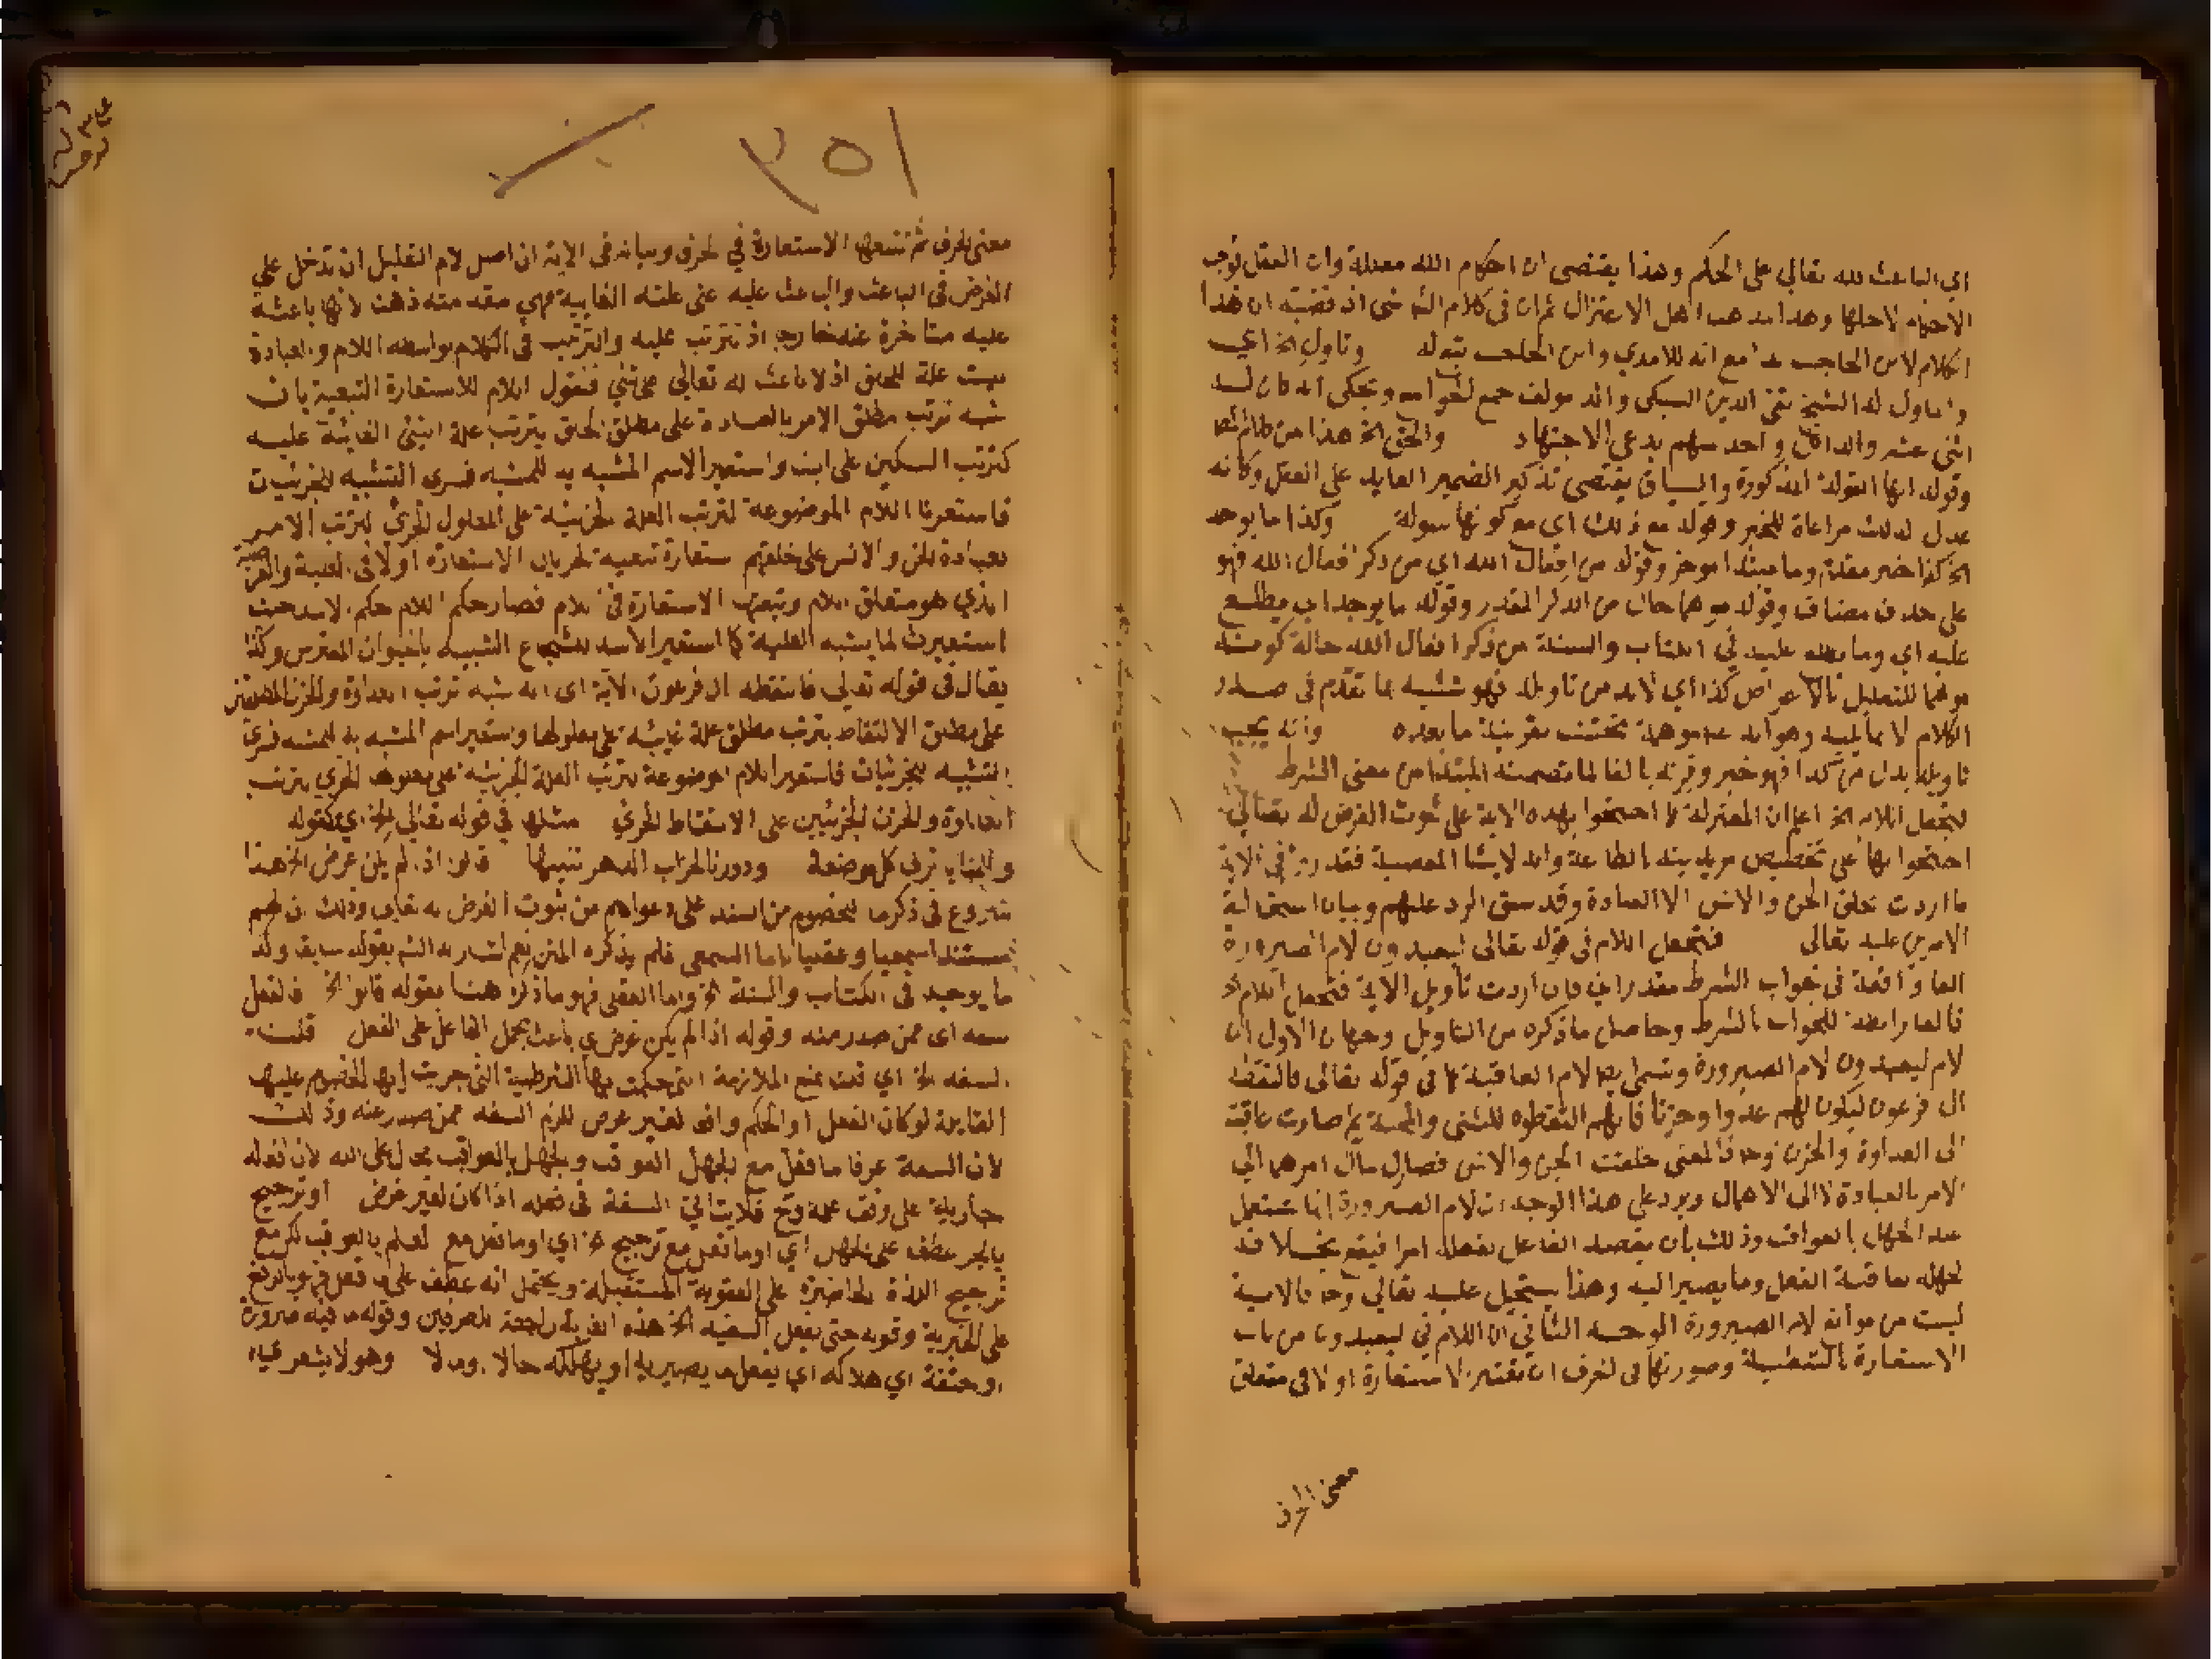 اي الباعث لله تعالي على الحكم وهذا يقتضى ان احكام الله معللة وان العقل توجب
الاحكام لاجلها وهذا مذهب اهل الاعتزال ثم ان فى كلام الش شى اذ قضيته ان هذا
الكلام لابن الحاجب مع انه للامدي وابن الحاجب بقوله وتاول الخ اي
والماول له الشيخ تقى الدين السبكى والد مولف جمع الجوامع ويحكى انه كان
اثنى عشر والد كل واحد منهم يدعى الاجتهاد والحق الخ هذا من كلام الش
وقوله انها المقولة المذكورة والسياق يقتضى تذكير الضمير العايد على العقل وكانه
عدل لذلك مراعاة للخبر وقوله مع ذلك اى مع كونها سولة وكذا ما يوجد
الخ كذا خبر مقدم وما مبتدا موخر وقوله من افعال الله اي من ذكر افعال الله فهو
على حذف مضاف وقوله موهما حال من الذكر المقدر وقوله ما يوجد اي يطلع
عليه اي وما يطلع عليه في الكتاب والسنة من ذكر افعال الله حالة كونه
موهما للتعليل بالاغراض كذا أي لابد من تاويله فهو شبيه بما تقدم فى صدر
الكلام لا بما يليه وهو انه موهمة بقرينة ما بعده وانه يجب
تاويله بدل من كذا فهو خبر وقرنه بالفا لما تضمنه المبتدا من معنى الشرط
فيجعل اللام الخ اعلم ان المعتزلة كما احتجوا بهذه الاية على ثبوت الغرض له تعالي
احتجوا بها على تخصيص مريديته بالطاعة وانه لا يشا المعصية فقد
ما اردت بخلق الجن والانس الا العبادة وقد سبق الرد عليهم وبيان استحالة
الامرين عليه تعالى فتجعل اللام فى قوله تعالى ليعبدون لام الصيرورة
الفا واقعة فى جواب الشرط مقدر اي فان اردت تأويل الاية فتجعل اللام الخ
فالفا رابطة للجواب بالشرط وحاصل ما ذكره من التاويل وجهان الاول ان
لام ليعبدون لام الصيرورة وتسمى ايضا لام العاقبة كما فى قوله تعالى فالتقطه
ال فرعون ليكون لهم عدوا وحزنا فانهم التقطوه للتبنى والمحبة ثم صارت عاقبته
الى العداوة والحزن وح فالمعنى خلقت الجن والانس فصار مآل امرهم الي
الامر بالعبادة لا الى الاهمال ويرد على هذا الوجه ان لام الصيرورة انما تستعمل
عند الجهل بالعواقب وذلك بان يقصد الفاعل بفعله امرا فيقع بخلافه
لجهله بعاقبة الفعل وما يصير اليه وهذا يستحيل عليه تعالي وح فالاية
ليست من مواقع لام الصيرورة الوجه الثانى ان اللام في ليعبدون من باب
الاستعارة التبعية وصورتها فى الحرف ان تعتبر الاستعارة اولا فى متعلق
معنى الحرف
٣٥١
معنى الحرف ثم تتبعها الاستعارة في الحرف وبيانه فى الاية ان اصل لام التعليل ان تدخل على
الغرض فى الباعث والباعث عليه عنى علته الغايية فهي متقدمة ذهنا لانها باعثة
عليه متاخرة عنه خارجا اذ تترتب عليه والترتب فى الكلام بواسطة اللام والعبادة
ليست علة للخلق اذ لا باعث له تعالى على شئ فنقول اللام للاستعارة التبعية بان
شبه ترتب مطلق الامر بالعبادة على مطلق الخلق بترتب علة الشئ الغائية عليه
واستعير الاسم المشبه به للمشبه فسرى التشبيه للجزئيات
فاستعرنا اللام الموضوعة لترتب العلة الجزئية على المعلول الجزئى لترتب الامر
بعبادة الجن والانس على خلقهم استعارة تبعية لجريان الاستعارة اولا فى العلية والغرضية
الذي هو متعلق اللام وتبعتها الاستعارة فى اللام فصار حكم اللام حكم الاسد حيث
استعيرت لما يشبه العلية كما استعير الاسد للشجاع الشبيه بالحيوان المفترس وكذا
يقال فى قوله تعالي فالتقطه ال فرعون الاية اى انه شبه ترتب العداوة والحزن المطلقين
على مطلق الالتقاط بترتب مطلق علة غائية على معلولها واستعير اسم المشبه به للمشبه فسرى
التشبيه للجزئيات فاستعير اللام الموضوعة لترتب العلة الجزئية على معلولها الجزئى لترتب
العداوة والحزن الجزئيين على الالتقاط الجزئي مثلها في قوله تعالي الخ اي كقوله
وللمنايا تربى كل مرضعة ودورنا لخراب الدهر نبنيها قالوا اذا لم يكن غرض الخ هذا
شروع فى ذكر ما للخصوم من السند على دعواهم من ثبوت الغرض له تعالى وذلك ان لهم
مستندا سمعيا وعقليا اما السمعي فلم يذكره المتن نعم اشار له الش بقوله سابقا وكذا
ما يوجد فى الكتاب والسنة الخ واما العقلى فهو ما ذكر هنا بقوله قالوا الخ فالفعل
سفه اى ممن صدر منه وقوله اذا لم يكن غرض اي باعث يحمل الفاعل على الفعل قلت
السفه الخ اي قلت بمنع الملازمة التى حكمت بها الشرطية التى جرت إليها الخصوم عليها
القايلة لو كان الفعل او الحكم واقع لغير غرض للزم السفه ممن صدر عنه وذلك
لان السفه عرفا ما فعل مع الجهل بالعواقب والجهل بالعواقب محال على الله لان افعاله
جارية على وفق علمه وح فلا يتاتي السفه فى فعله اذا كان لغير غرض او ترجيح
بالجر عطف على الجهل أي او ما فعل مع ترجيح الخ اي او ما فعل مع العلم بالعواقب لكن مع
ترجيح اللذة الحاضرة على العقوبة المستقبلة ويحتمل انه عطف على ما فعل فهو بالرفع
وقوله حتى يفعل السفيه الخ هذه الغاية راجعة للطرفين وقوله ما فيه ضرورة
او حتفه اي هلاكه اي يفعل ما يصير به او يهلكه حالا او مالا وهو لا يشعر